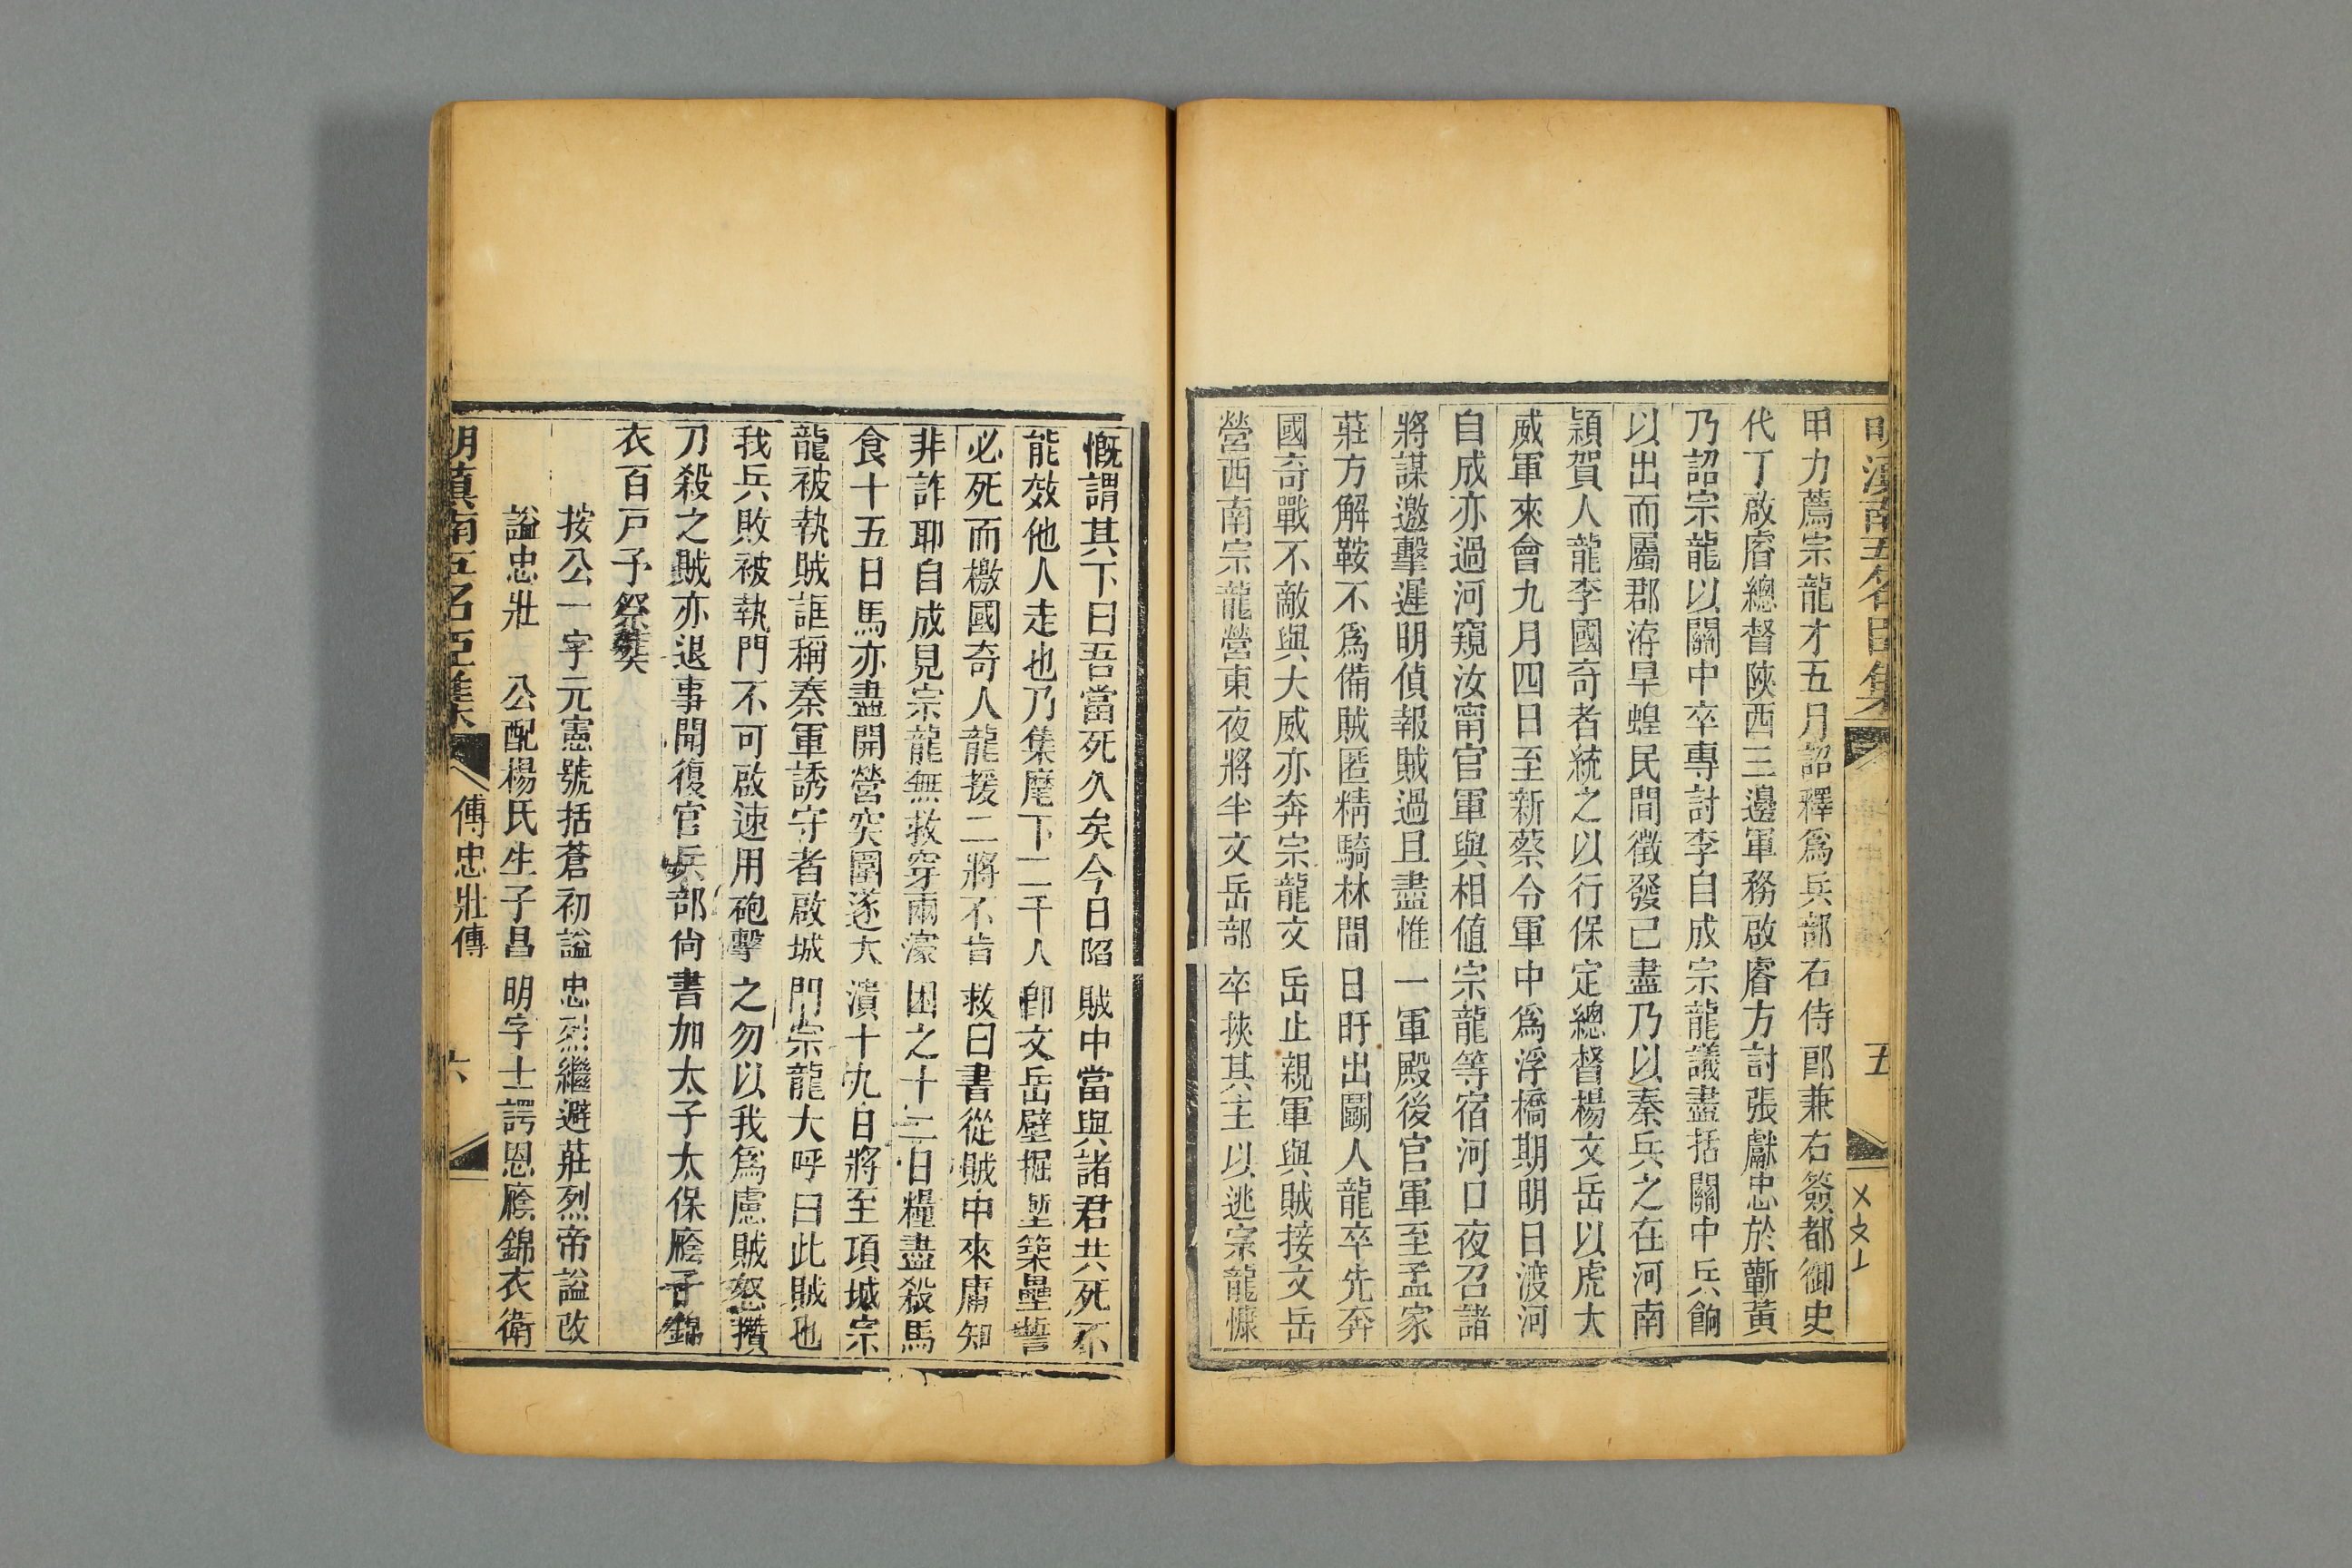 明滇南五名臣集
五
甲力薦宗龍才五月詔釋爲兵部右侍郎兼右簽都御史
代丁啟睿總督陝西三邊軍務啟睿方討張獻忠於蘄黃
乃詔宗龍以關中卒專討李自成宗龍議盡括關中兵餉
以出而屬郡洊旱蝗民間徵發已盡乃以秦兵之在河南
頴賀人龍李國奇者統之以行保定總督楊文岳以虎大
威軍來會九月四日至新蔡令軍中爲浮橋期明日渡河
自成亦過河窺汝甯官軍與相値宗龍等宿河口夜召諸
將謀邀擊遲明偵報賊過且盡惟一軍殿後官軍至孟家
莊方解鞍不爲備賊匿精騎林間日旰出鬬人龍卒先奔
國奇戰不敵與大威亦奔宗龍文岳止親軍與賊接文岳
營西南宗龍營東夜將半文岳部卒挾其主以逃宗龍慷
慨謂其下曰吾當死久矣今日陷賊中當與諸君共死不
能效他人走也乃集麾下二千人卽文岳壁掘塹築壘誓
必死而檄國奇人龍援二將不肯救曰書從賊中來庸知
非詐耶自成見宗龍無救穿兩濠困之十二日糧盡殺馬
食十五日馬亦盡開營突圍遂大潰十九日將至項城宗
龍被執賊誆稱秦軍誘守者啟城門宗龍大呼曰此賊也
我兵敗被執門不可啟速用砲擊之勿以我爲慮賊怒攢
刀殺之賊亦退事聞復官兵部尙書加太子太保廕子錦
衣百戸予祭葬
按公一字元憲號括蒼初謚忠烈繼避莊烈帝謚改
謚忠壯　公配楊氏生子昌明字士諤恩廕錦衣衛
明滇南五名臣集
傳忠壯傳
六